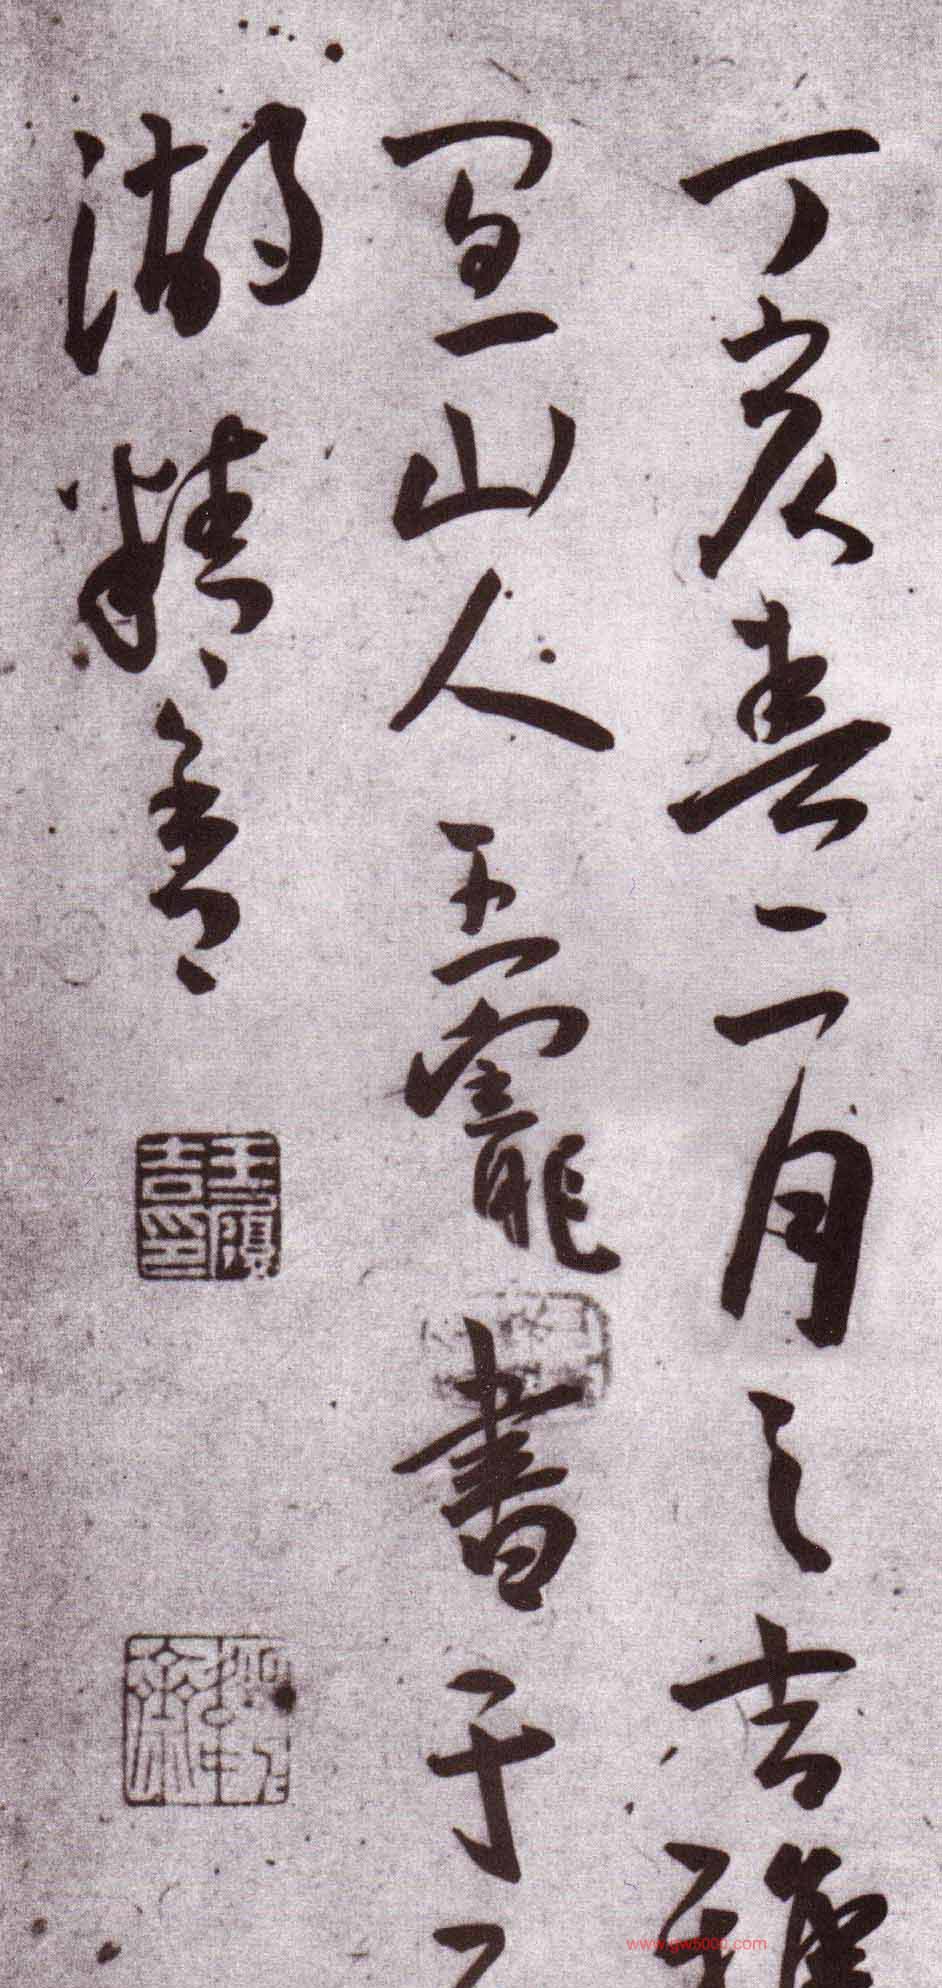 丁亥春二月之吉雅
宜山人王寵書于
湖精舍
王履吉印
www.gw5000.com